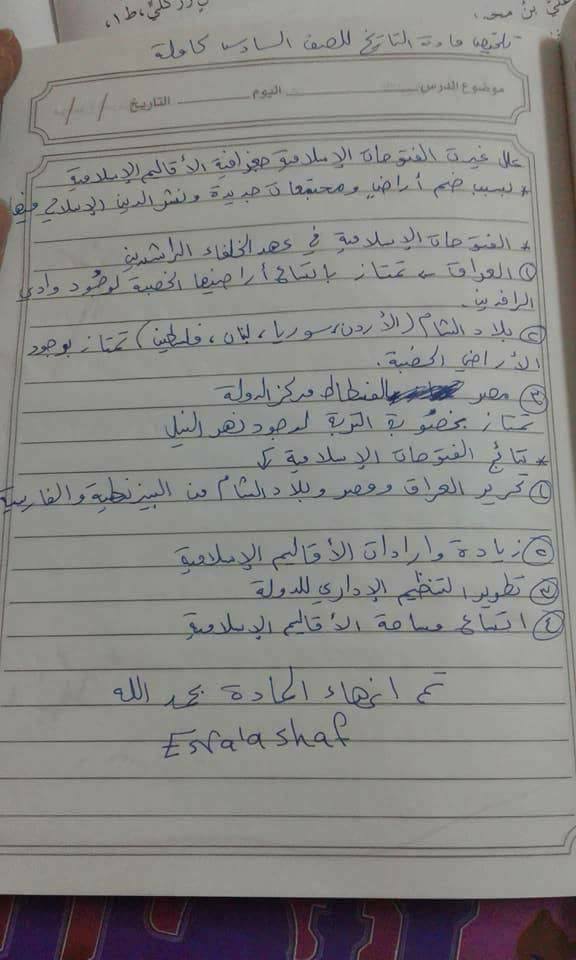 علي بن
كلي، ط١،
تلخيص مادة التاريخ للصف السادس كاملة
موضوع الدرس اليوم التاريخ / /
علل غيرت الفتوحات الإسلامية جغرافية الأقاليم الإسلامية
* بسبب ضم أراضي ومجتمعات جديدة ونشر الدين الإسلامي فيها
* الفتوحات الإسلامية في عهد الخلفاء الراشدين
١ العراق ← تمتاز بإتساع أراضيها الخصبة لوجود وادي
الرافدين.
٢ بلاد الشام (الأردن، سوريا، لبنان، فلسطين) تمتاز بوجود
الأراضي الخصبة.
٣ مصر الفسطاط مركز الدولة
تمتاز بخصوبة التربة لوجود نهر النيل
* نتائج الفتوحات الإسلامية ↓
١ تحرير العراق ومصر وبلاد الشام من البيزنطية والفارسية
٢ زيادة واردات الأقاليم الإسلامية
٣ تطوير التنظيم الإداري للدولة
٤ اتساع مساحة الأقاليم الإسلامية
تم انهاء المادة بحمد الله
Esra'a shaf